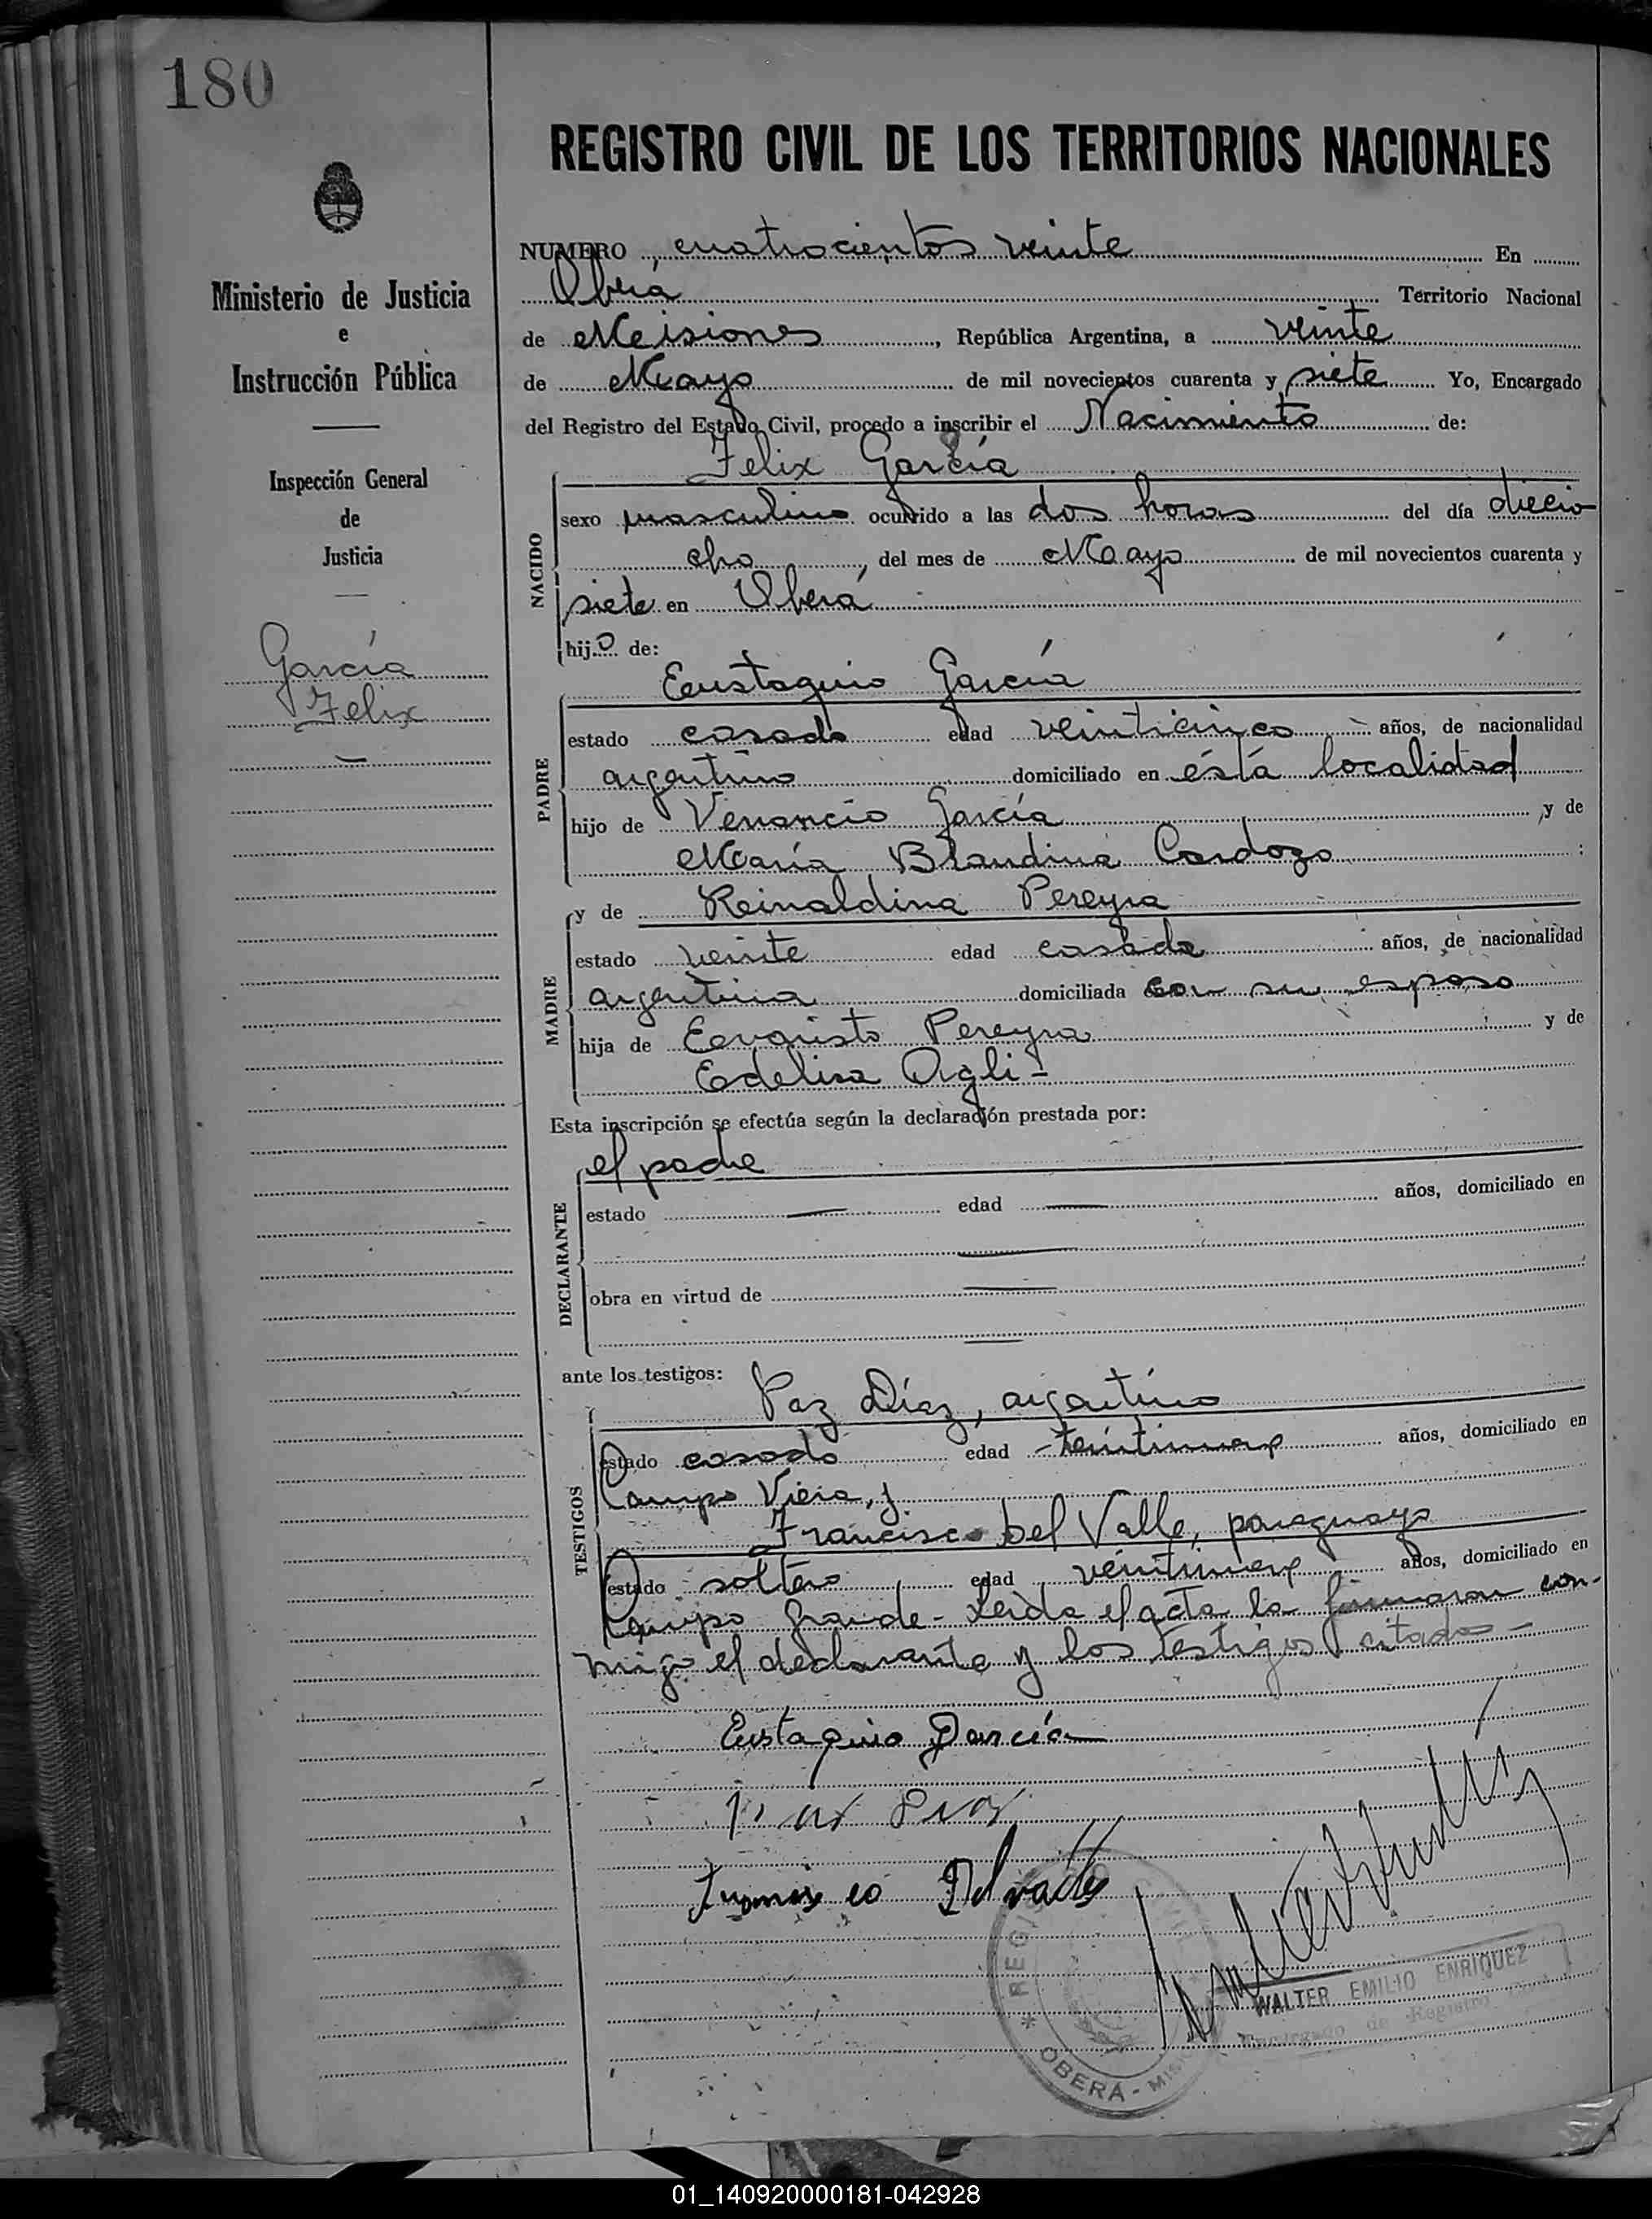 180
REGISTRO CIVIL DE LOS TERRITORIOS NACIONALES
Ministerio de Justicia
e
Instrucción Pública
Inspección General
de
Justicia
García
Felix
NUMERO cuatrocientos veinte En
Oberá Territorio Nacional
de Misiones, República Argentina, a veinte
de Mayo de mil novecientos cuarenta y siete Yo, Encargado
del Registro del Estado Civil, procedo a inscribir el Nacimiento de:
Felix García
NACIDO
sexo masculino ocurrido a las dos horas del día diecio
cho, del mes de Mayo de mil novecientos cuarenta y
siete en Oberá
hijo de:
Eustaquio García
PADRE
estado casado edad veinticinco años, de nacionalidad
argentino domiciliado en ésta localidad
hijo de Venancio García, y de
María Blandina Cardozo :
y de Reinaldina Pereyra
MADRE
estado veinte edad casada años, de nacionalidad
argentina domiciliada con su esposo
hija de Evaristo Pereyra y de
Edelisa Agli-
Esta inscripción se efectúa según la declaración prestada por:
el padre
DECLARANTE
estado — edad — años, domiciliado en
—
obra en virtud de —
—
ante los testigos:
Paz Díaz, argentino
TESTIGOS
estado casado edad años, domiciliado en
Campo Viera, y
Francisco Del Valle, paraguayo
estado soltero edad veintinueve años, domiciliado en
Campo Grande- Leída el acta la firmaron con-
migo el declarante y los testigos citados-
Eustaquio García
REGISTRO CIVIL
OBERÁ - MIS
WALTER EMILIO ENRIQUEZ
Encargado de Registro Civil
01_140920000181-042928